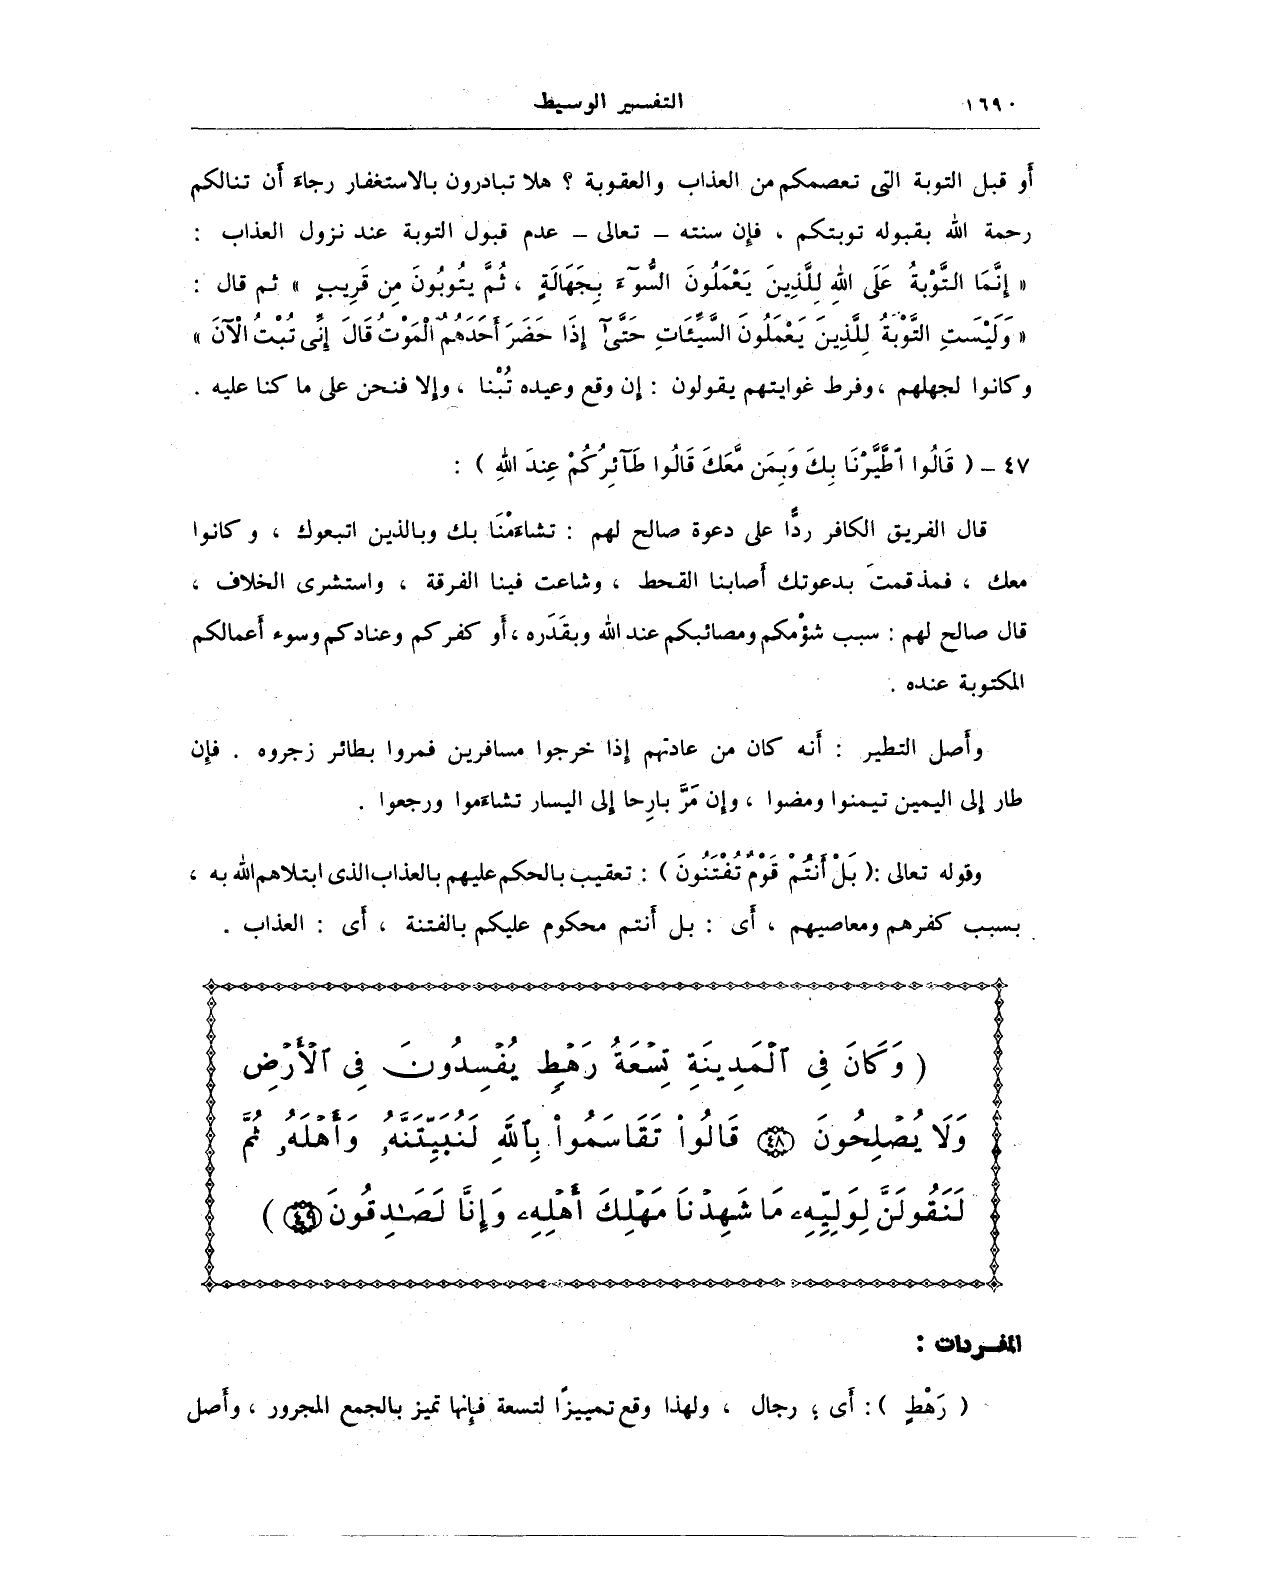 ١٦٩٠ التفسير الوسيط
أو قبل التوبة التى تعصمكم من العذاب والعقوبة ؟ هلا تبادرون بالاستغفار رجاءَ أن تنالكم
رحمة الله بقبوله توبتكم ، فإن سنته – تعالى – عدم قبول التوبة عند نزول العذاب :
« إِنَّمَا التَّوْبَةُ عَلَى اللهِ لِلَّذِينَ يَعْمَلُونَ السُّوٓءَ بِجَهَالَةٍ ، ثُمَّ يَتُوبُونَ مِن قَرِيبٍ » ثم قال :
« وَلَيْسَتِ التَّوْبَةُ لِلَّذِينَ يَعْمَلُونَ السَّيِّئَاتِ حَتَّىٰٓ إِذَا حَضَرَ أَحَدَهُمُ الْمَوْتُ قَالَ إِنِّى تُبْتُ الْآنَ »
وكانوا لجهلهم ، وفرط غوايتهم يقولون : إن وقع وعيده تُبْنا ، وإلا فنحن على ما كنا عليه .
٤٧ – ( قَالُوا ٱطَّيَّرْنَا بِكَ وَبِمَن مَّعَكَ قَالُوا طَآئِرُكُمْ عِندَ اللهِ ) :
قال الفريق الكافر ردًّا على دعوة صالح لهم : تشاءَمْنَا بك وبالذين اتبعوك ، وكانوا
معك ، فمذ قمتَ بدعوتك أصابنا القحط ، وشاعت فينا الفرقة ، واستشرى الخلاف ،
قال صالح لهم : سبب شؤْمكم ومصائبكم عند الله وبقَدَره ، أو كفركم وعنادكم وسوء أعمالكم
المكتوبة عنده .
وأصل التطير : أنه كان من عادتهم إذا خرجوا مسافرين فمروا بطائر زجروه . فإن
طار إلى اليمين تيمنوا ومضوا ، وإن مَرَّ بارِحا إلى اليسار تشاءَموا ورجعوا .
وقوله تعالى :( بَلْ أَنتُمْ قَوْمٌ تُفْتَنُونَ ) : تعقيب بالحكم عليهم بالعذاب الذى ابتلاهم الله به ،
بسبب كفرهم ومعاصيهم ، أى : بل أنتم محكوم عليكم بالفتنة ، أى : العذاب .
( وَكَانَ فِى ٱلْمَدِينَةِ تِسْعَةُ رَهْطٍ يُفْسِدُونَ فِى ٱلْأَرْضِ
وَلَا يُصْلِحُونَ ٤٨ قَالُوا۟ تَقَاسَمُوا۟ بِٱللَّهِ لَنُبَيِّتَنَّهُۥ وَأَهْلَهُۥ ثُمَّ
لَنَقُولَنَّ لِوَلِيِّهِۦ مَا شَهِدْنَا مَهْلِكَ أَهْلِهِۦ وَإِنَّا لَصَـٰدِقُونَ ٤٩ )
المفردات :
( رَهْطٍ ) : أى ؛ رجال ، ولهذا وقع تمييزًا لتسعة فإنها تميز بالجمع المجرور ، وأصل